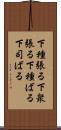 下種張る下衆
張る下種ばる
下司ばる